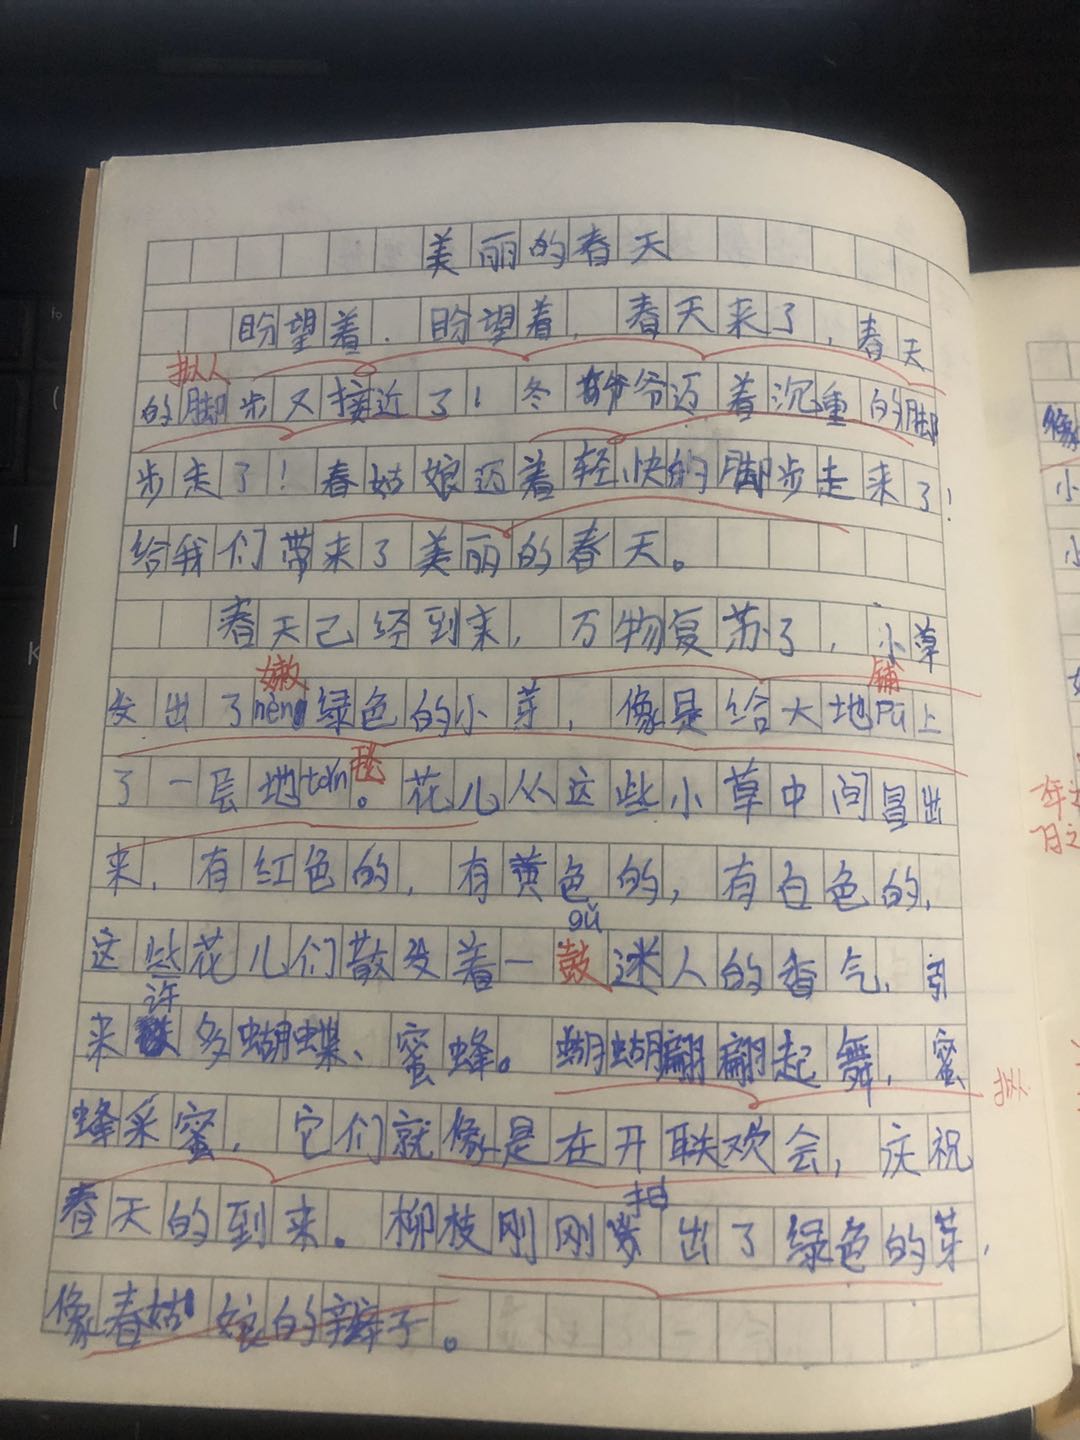 美丽的春天
盼望着，盼望着，春天来了，春天
拟人
的脚步又接近了！冬爷爷迈着沉重的脚
步走了！春姑娘迈着轻快的脚步走来了！
给我们带来了美丽的春天。
春天已经到来，万物复苏了，小草
嫩 铺
发出了nèng绿色的小芽，像是给大地pū上
了一层地tǎn毯。花儿从这些小草中间冒出
来，有红色的，有黄色的，有白色的，
gǔ
这些花儿们散发着一鼓迷人的香气，引
许
来多蝴蝶、蜜蜂。蝴蝴翩翩起舞，蜜
拟人
蜂采蜜，它们就像是在开联欢会，庆祝
春天的到来。柳枝刚刚出了绿色的芽，
像春姑娘的辫子。
像
小
小
年之
日之